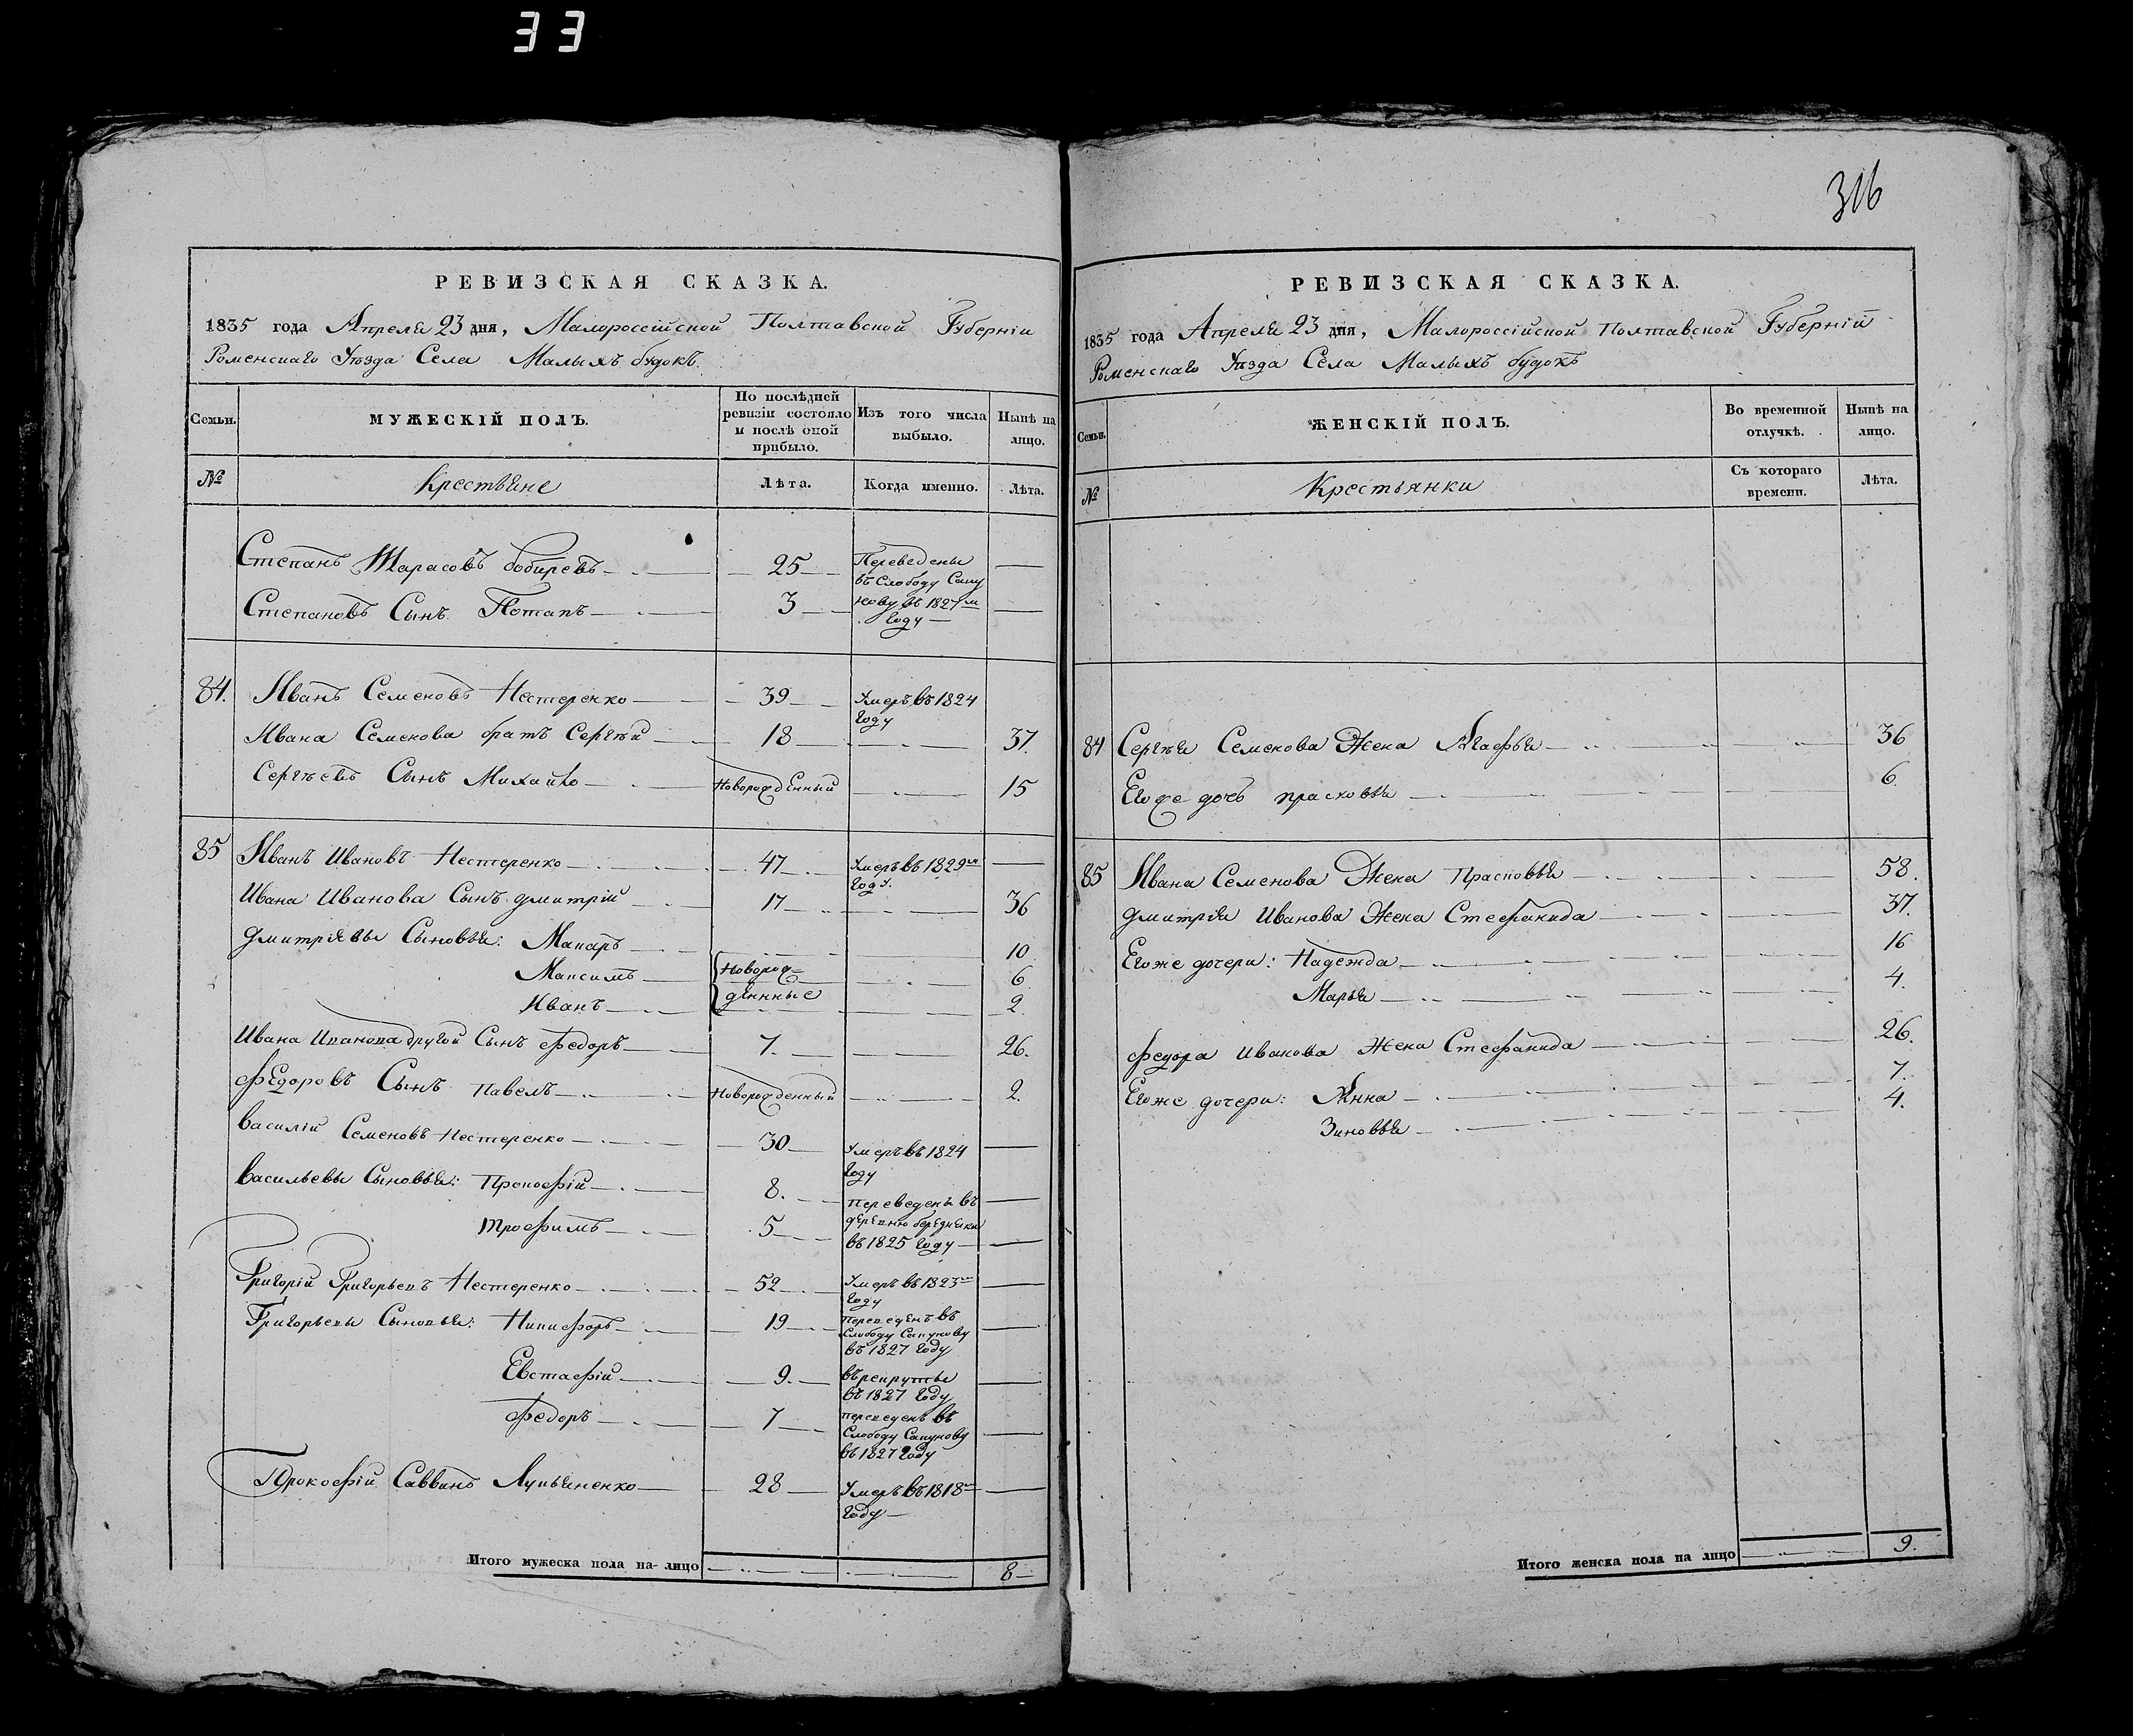 33
316
РЕВИЗСКАЯ СКАЗКА.
1835 года Апреля 23 дня, Малороссійской Полтавской Губерніи
Роменскаго Уѣзда Села Малыхъ будокъ.
Семьи. МУЖЕСКІЙ ПОЛЪ. По послѣдней ревизіи состояло и послѣ оной прибыло. Изъ того числа выбыло. Нынѣ на лицо.
№ Крестьяне Лѣта. Когда именно. Лѣта.
Степанъ Тарасовъ 25 Переведены
въ Слободу Сапу
Степановъ Сынъ Потапъ 3 нову въ 1827м
году
84. Иванъ Семеновъ Нестеренко 39 Умеръ въ 1824
году
Ивана Семенова братъ Сергѣй 18 37.
Сергѣевъ Сынъ Михайло Новорожденный 15
85 Иванъ Ивановъ Нестеренко 47 Умеръ въ 1829м
году.
Ивана Иванова Сынъ дмитрій 17 36
дмитріявы Сыновья: Макаръ 10
Максимъ Новорож= 6
Иванъ денные 2.
Ивана Иванова другой Сынъ Федоръ 7. 26.
Федоровъ Сынъ Павелъ Новорожденный 2.
василій Семеновъ Нестеренко 30 Умеръ въ 1824
году
васильевы Сыновья: Прокофій 8. переведены въ
деревню
трофимъ 5 въ 1825 году
Григорій Григорьевъ Нестеренко 52 Умеръ въ 1823м
году
Григорьевы Сыновья: Никифоръ 19 переведенъ въ
Слободу Сапунову
въ 1827 году
Евстафій 9. въ рекруты
въ 1827 году
Федоръ 7 переведенъ въ
Слободу Сапунову
въ 1827 году
Прокофій Саввинъ Лукьяненко 28 Умеръ въ 1818м
году
Итого мужеска пола на-лицо 8
РЕВИЗСКАЯ СКАЗКА.
1835 года Апреля 23 дня, Малороссійской Полтавской Губерній
Роменскаго Уѣзда Села Малыхъ будокъ
Семьи. ЖЕНСКІЙ ПОЛЪ. Во временной отлучкѣ. Нынѣ на лицо.
№ Крестьянки Съ котораго времени. Лѣта.
84 Сергѣя Семенова Жена Агафья 36
Егоже дочь прасковья 6.
85 Ивана Семенова Жена Прасковья 58.
дмитрія Иванова Жена Стефанида 37.
Егоже дочери: Надежда 16
Марья 4.
Федора Иванова Жена Стефанида 26.
Егоже дочери: Анна 7.
Зиновья 4.
Итого женска пола на лицо 9.